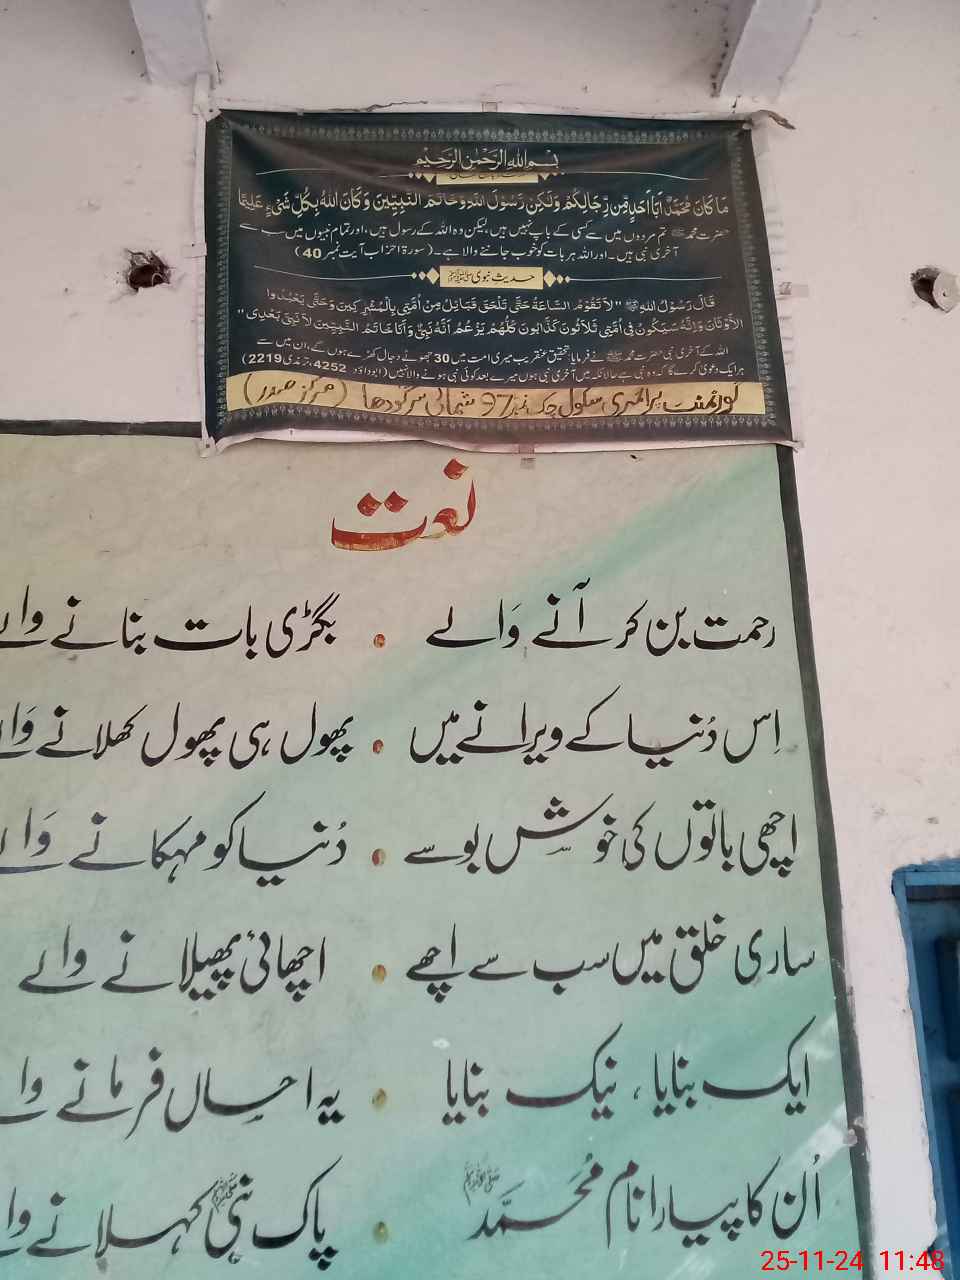 بسم الله الرحمن الرحيم
مَا كَانَ مُحَمَّدٌ اَبَآ اَحَدٍ مِّن رِّجَالِكُمْ وَلَٰكِن رَّسُولَ اللهِ وَخَاتَمَ النَّبِيِّينَ وَكَانَ اللهُ بِكُلِّ شَيْءٍ عَلِيمًا
حضرت محمد ﷺ تم مردوں میں سے کسی کے باپ نہیں ہیں لیکن وہ اللہ کے رسول ہیں، اور تمام نبیوں میں سب سے
آخری نبی ہیں۔ اور اللہ ہر بات کو خوب جاننے والا ہے۔ (سورۃ احزاب آیت نمبر 40)
حدیث نبوی ﷺ
قَالَ رَسُوْلُ اللهِ ﷺ "لَا تَقُوْمُ السَّاعَةُ حَتّٰى تَلْحَقَ قَبَائِلُ مِنْ اُمَّتِى بِالْمُشْرِكِينَ وَحَتّٰى يَعْبُدُوا
الْأَوْثَانَ وَإِنَّهُ سَيَكُونُ فِى اُمَّتِى ثَلَاثُونَ كَذَّابُونَ كُلُّهُمْ يَزْعُمُ اَنَّهُ نَبِيٌّ وَاَنَا خَاتَمُ النَّبِيِّينَ لَا نَبِيَّ بَعْدِى"
اللہ کے آخری نبی حضرت محمد ﷺ نے فرمایا تحقیق عنقریب میری امت میں 30 جھوٹے دجال کھڑے ہوں گے، ان میں سے
ہر ایک دعویٰ کرے گا کہ وہ نبی ہے حالانکہ میں آخری نبی ہوں میرے بعد کوئی نبی ہونے والا نہیں (ابوداؤد 4252، ترمذی 2219)
گورنمنٹ پرائمری سکول چک نمبر 97 شمالی سرگودھا (مرکز صدر)
نعت
رحمت بن کر آنے وَالے • بگڑی بات بنانے والے
اِس دُنیا کے ویرانے میں • پھول ہی پھول کھلانے وَالے
اچھی باتوں کی خوش بو سے • دُنیا کو مہکانے وَالے
ساری خلق میں سب سے اچھے • اچھائی پھیلانے والے
ایک بنایا ، نیک بنایا • یہ احساں فرمانے والے
اُن کا پیارا نام مُحَمَّد ﷺ • پاک نبی ﷺ کہلانے والے
25-11-24 11:48